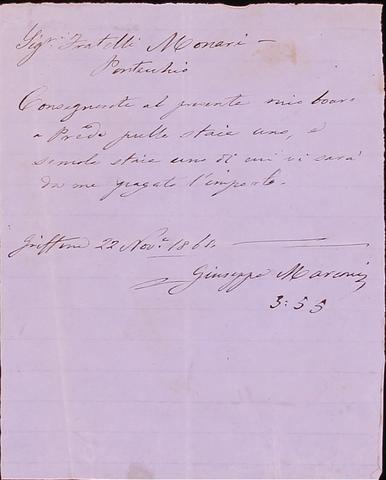 Sigri Fratelli Monari -
Pontecchio
Consegnerete al presente mio boaro
a Prede pelle staie uno, e
semole staie uno di cui vi sarà
da me pagato l'importo.
Griffone 22 Novre 1861.
Giuseppe Marconi
3:55